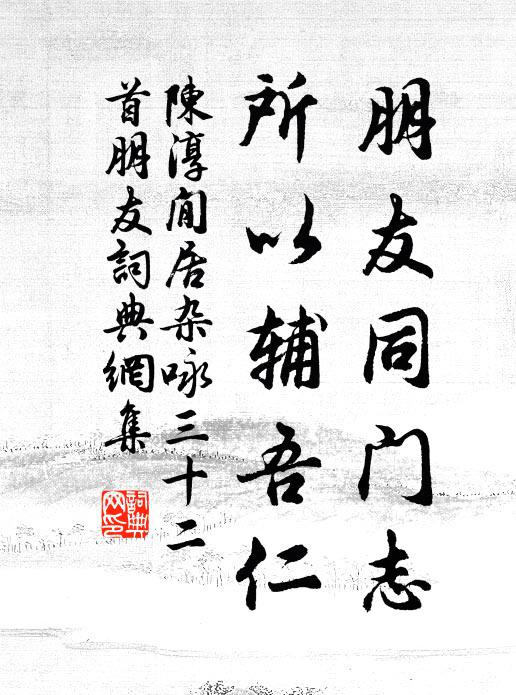 朋友同门志
所以辅吾仁
陳淳闲居杂咏三十二
首朋友詞典網集
詞典网印